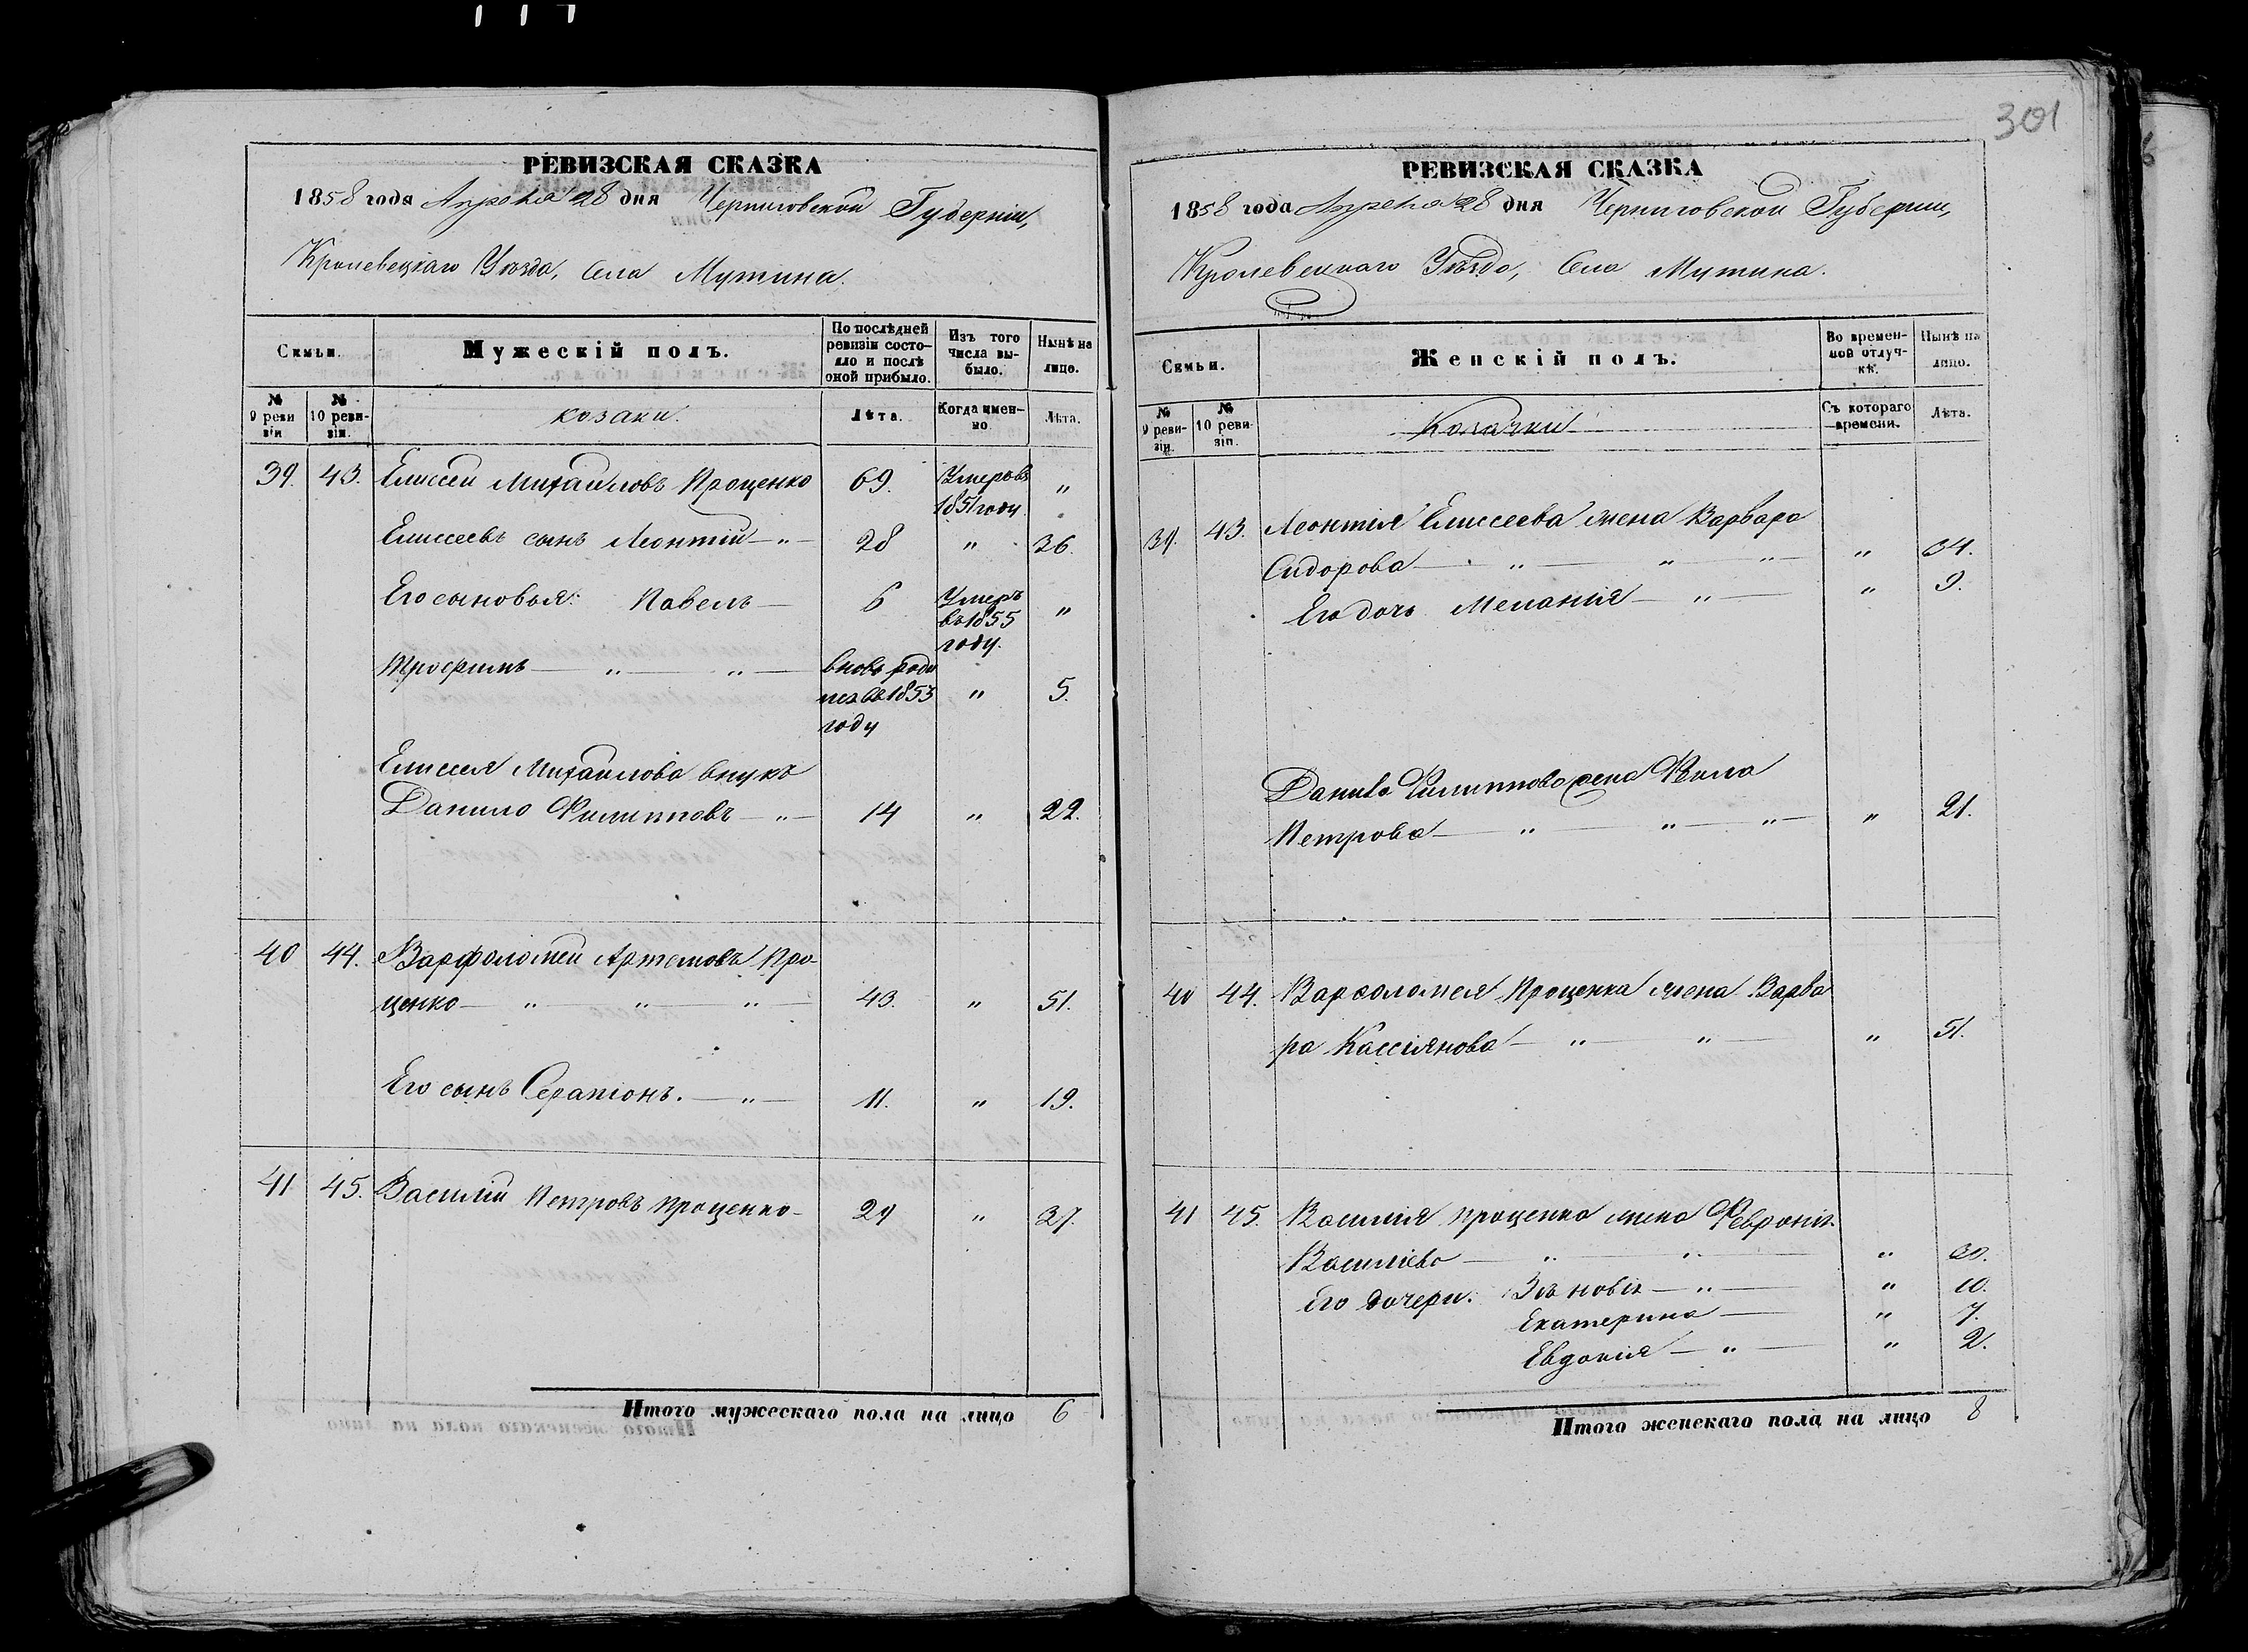 301
РЕВИЗСКАЯ СКАЗКА
1858 года Апреля 28 дня Черниговской Губерніи,
Кролевецкаго Уѣзда, Села Мутина.
Семьи.
Мужескій полъ.
По послѣдней ревизіи состояло и послѣ оной прибыло.
Изъ того числа выбыло.
Нынѣ на лицо.
№ 9 ревизіи
№ 10 ревизіи.
козаки.
Лѣта.
Когда именно.
Лѣта.
39. 43. Елиссей Михайловъ Проценко 69. Умеръ въ 1851 году "
Елиссеевъ сынъ Леонтій — " — 28 " 36.
Его сыновья: Павелъ — 6 Умеръ въ 1855 году. "
Трофимъ — " — " — вновь родился въ 1853 году " 5.
Елиссея Михайлова внукъ
Данило Филипповъ — " — 14 " 22.
40 44. Варфоломей Артемовъ Про-
ценко — " " " — 43. " 51.
Его сынъ Серапіонъ. — " — 11. " 19.
41 45. Василій Петровъ Проценко — 29 " 37.
Итого мужескаго пола на лицо 6
РЕВИЗСКАЯ СКАЗКА
1858 года Апреля 28 дня Черниговской Губерніи,
Кролевецкаго Уѣзда, Села Мутина.
Семьи.
Женскій полъ.
Во временной отлучкѣ.
Нынѣ на лицо.
№ 9 ревизіи.
№ 10 ревизіи.
Козачки
Съ котораго времени.
Лѣта.
39. 43. Леонтія Елиссеева жена Варвара
Сидорова — " — " — " — " 34.
Его дочь Меланія — " — " 9.
Данила Филиппова жена
Петрова — " — " — " — " 21.
40 44. Варфоломея Проценка жена Варва
ра Кассіянова — " — " — " 51.
41 45. Василія Проценка жена Февронія
Василіева — " " — " 30.
Его дочери: Зѣновія — " — " 10.
Екатерина — " 7.
Евдокія — " — " 2.
Итого женскаго пола на лицо 8